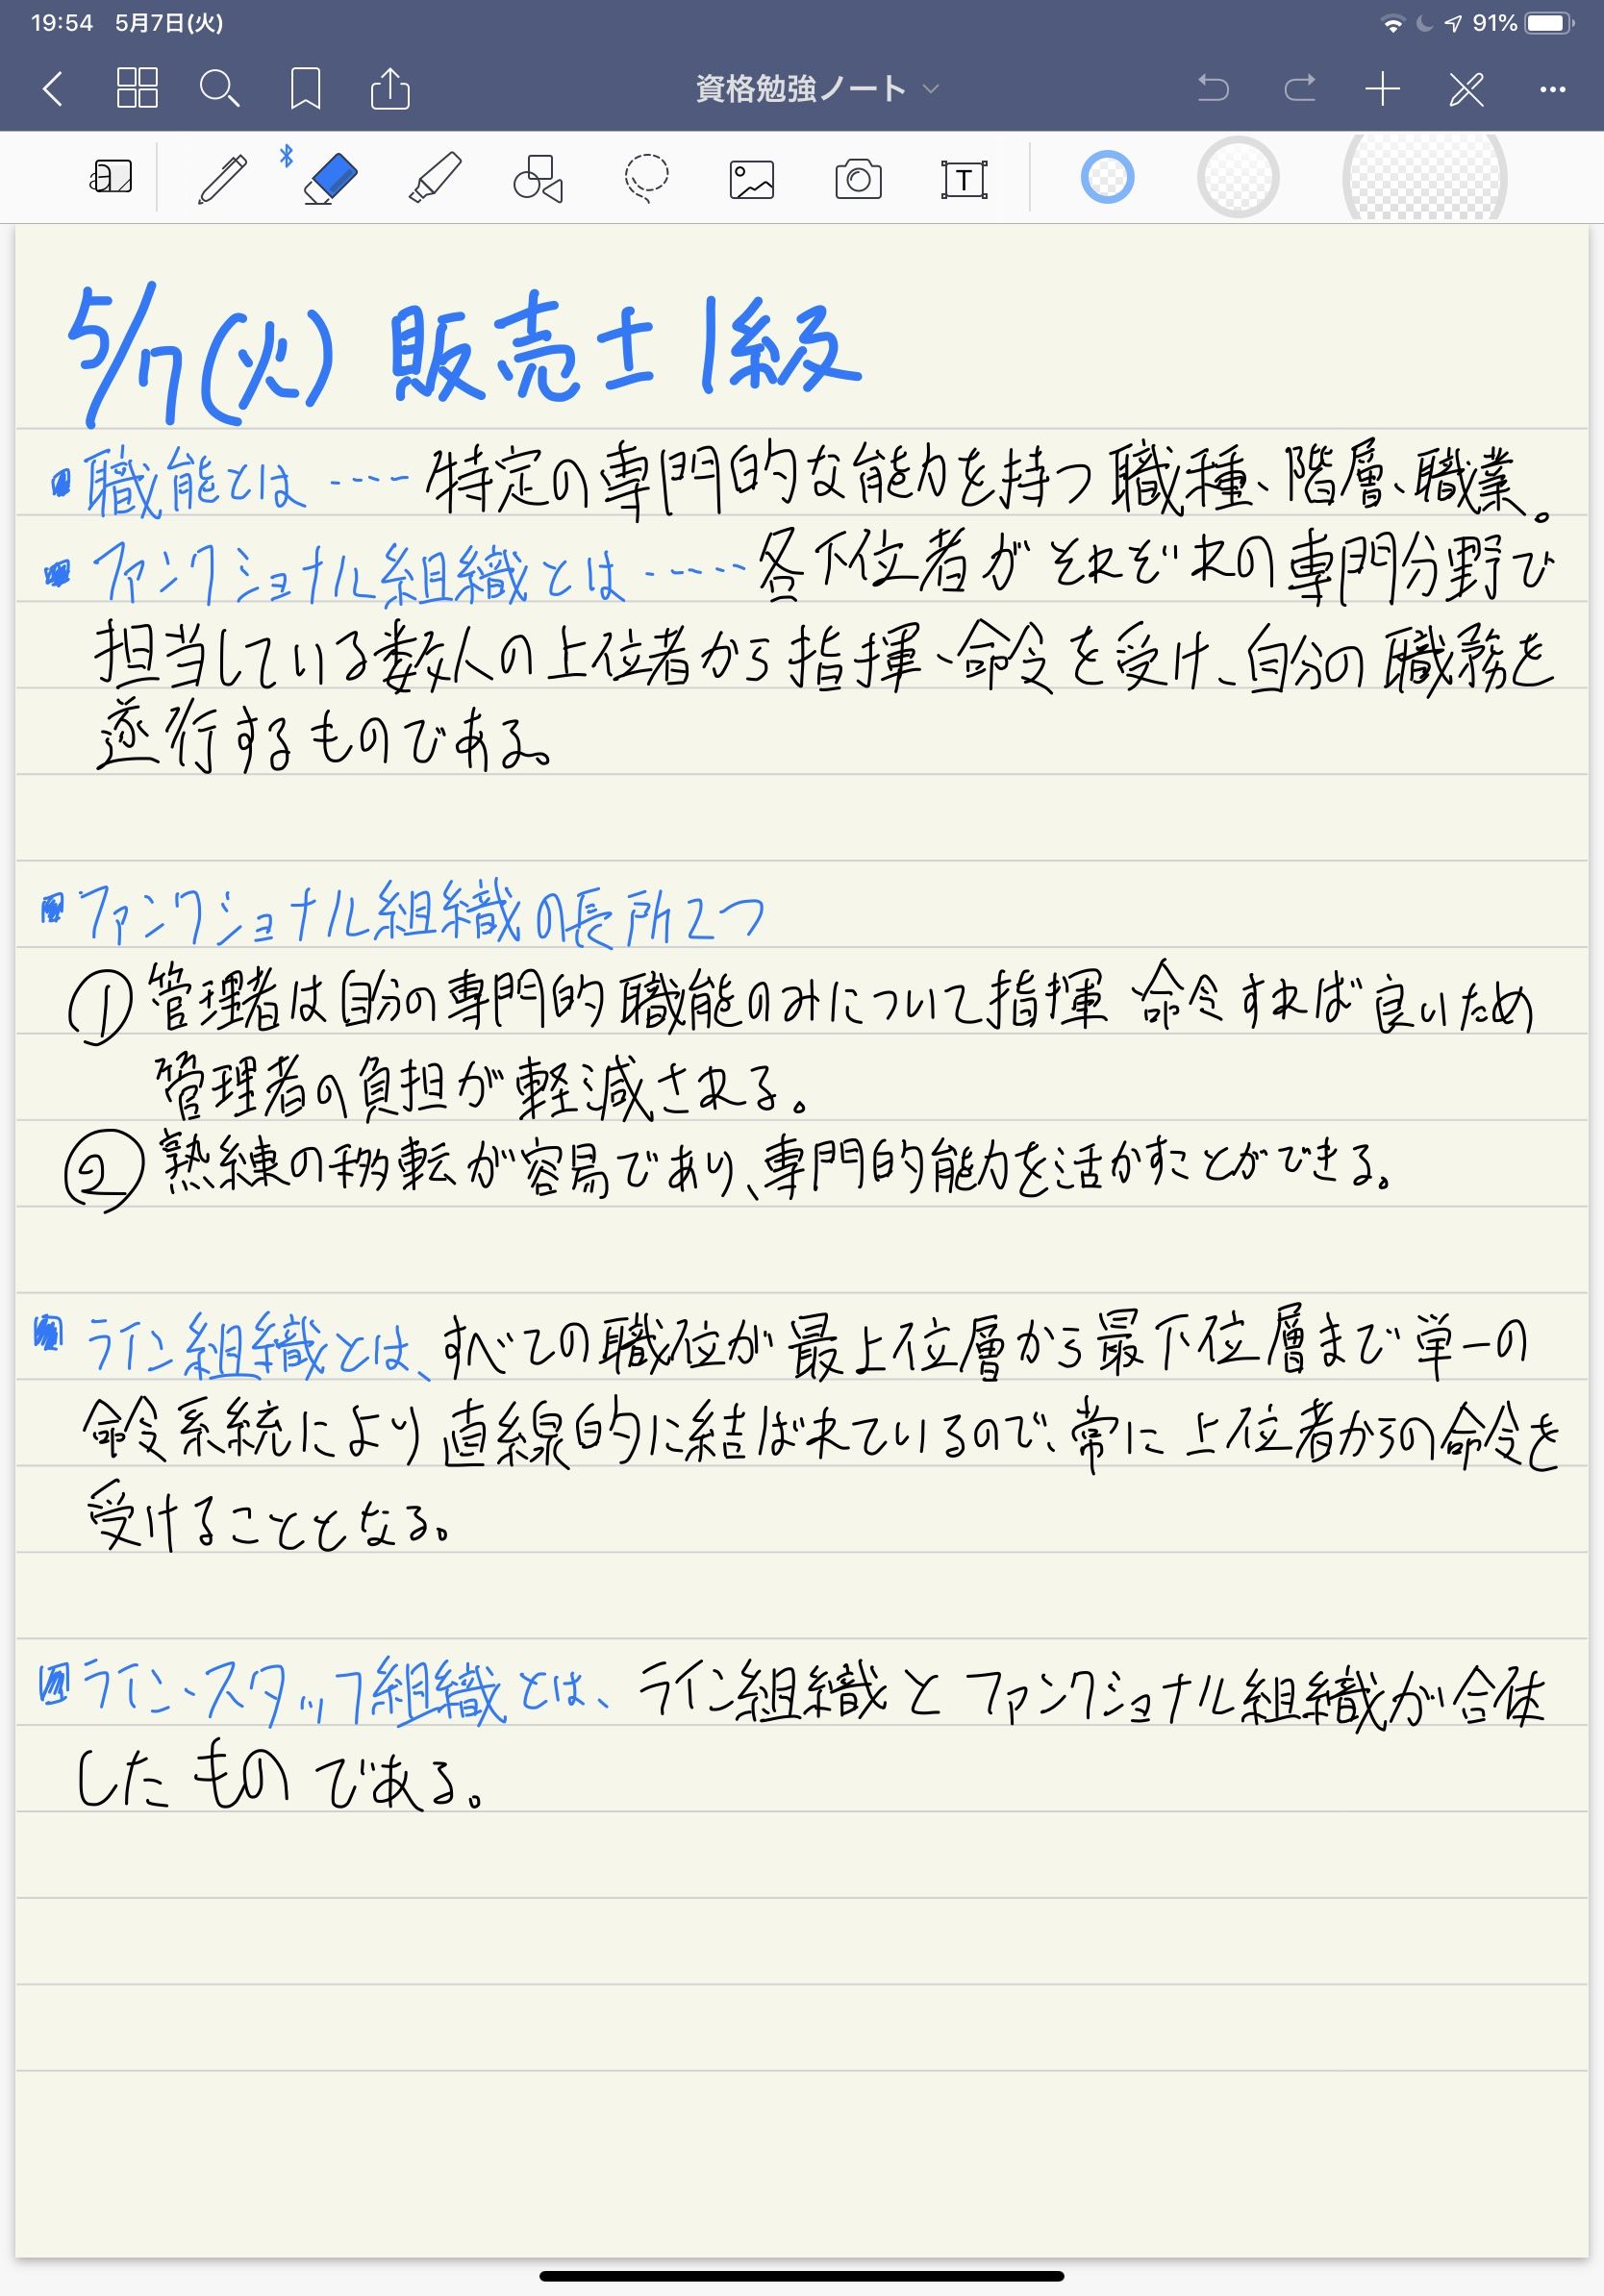 19:54 5月7日(火) 91%
資格勉強ノート
T
5/7(火) 販売士 1級
職能とは・・・・特定の専門的な能力を持つ職種、階層、職業。
ファンクショナル組織とは・・・・・各下位者がそれぞれの専門分野で
担当している数人の上位者から指揮、命令を受け、自分の職務を
遂行するものである。
ファンクショナル組織の長所2つ
① 管理者は自分の専門的職能のみについて指揮 命令すれば良いため
管理者の負担が軽減される。
② 熟練の移転が容易であり、専門的能力を活かすことができる。
ライン組織とは、すべての職位が最上位層から最下位層まで単一の
命令系統により直線的に結ばれているので、常に上位者からの命令を
受けることとなる。
ライン・スタッフ組織とは、ライン組織とファンクショナル組織が合体
したものである。